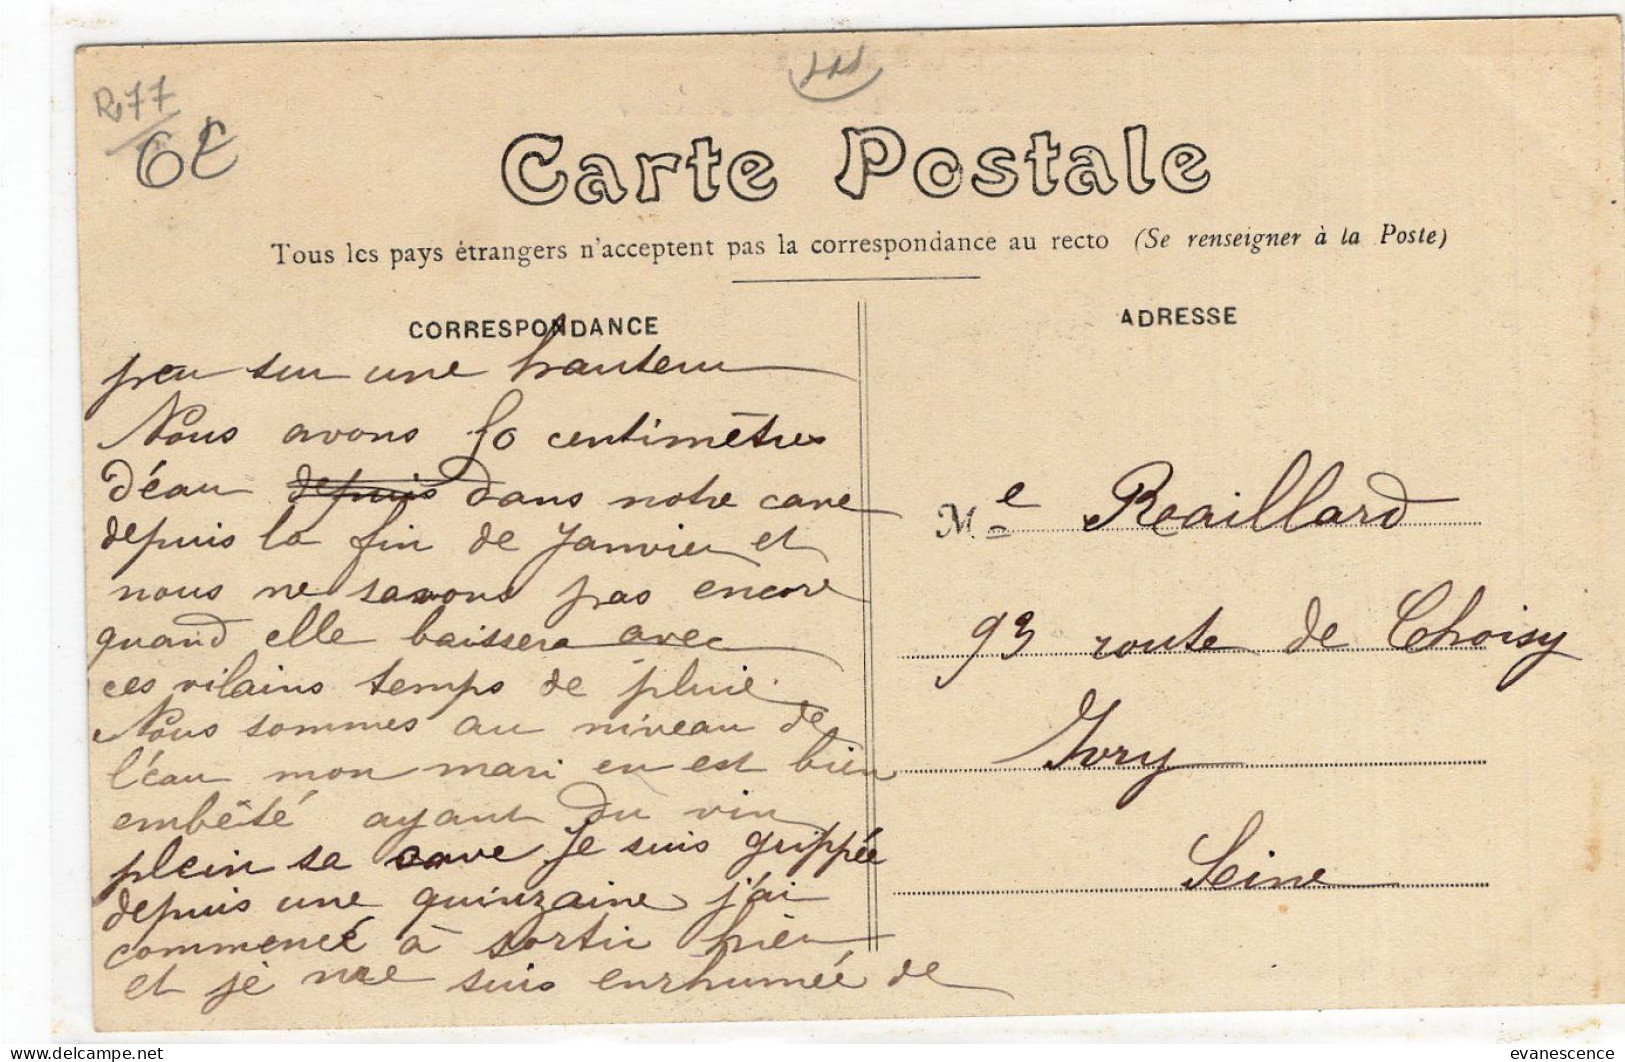 R77
6€
Carte Postale
Tous les pays étrangers n'acceptent pas la correspondance au recto (Se renseigner à la Poste)
CORRESPONDANCE
peu sur une hauteur
Nous avons 50 centimètres
d'eau depuis dans notre cave
depuis la fin de Janvier et
nous ne savons pas encore
quand elle baissera avec
ces vilains temps de pluie.
Nous sommes au niveau de
l'eau mon mari en est bien
embêté ayant du vin
plein sa cave je suis grippée
depuis une quinzaine j'ai
commencé à sortir hier
et je me suis enrhumée de
ADRESSE
Me Reaillard
93 route de Choisy
Ivry
Seine
evanescence